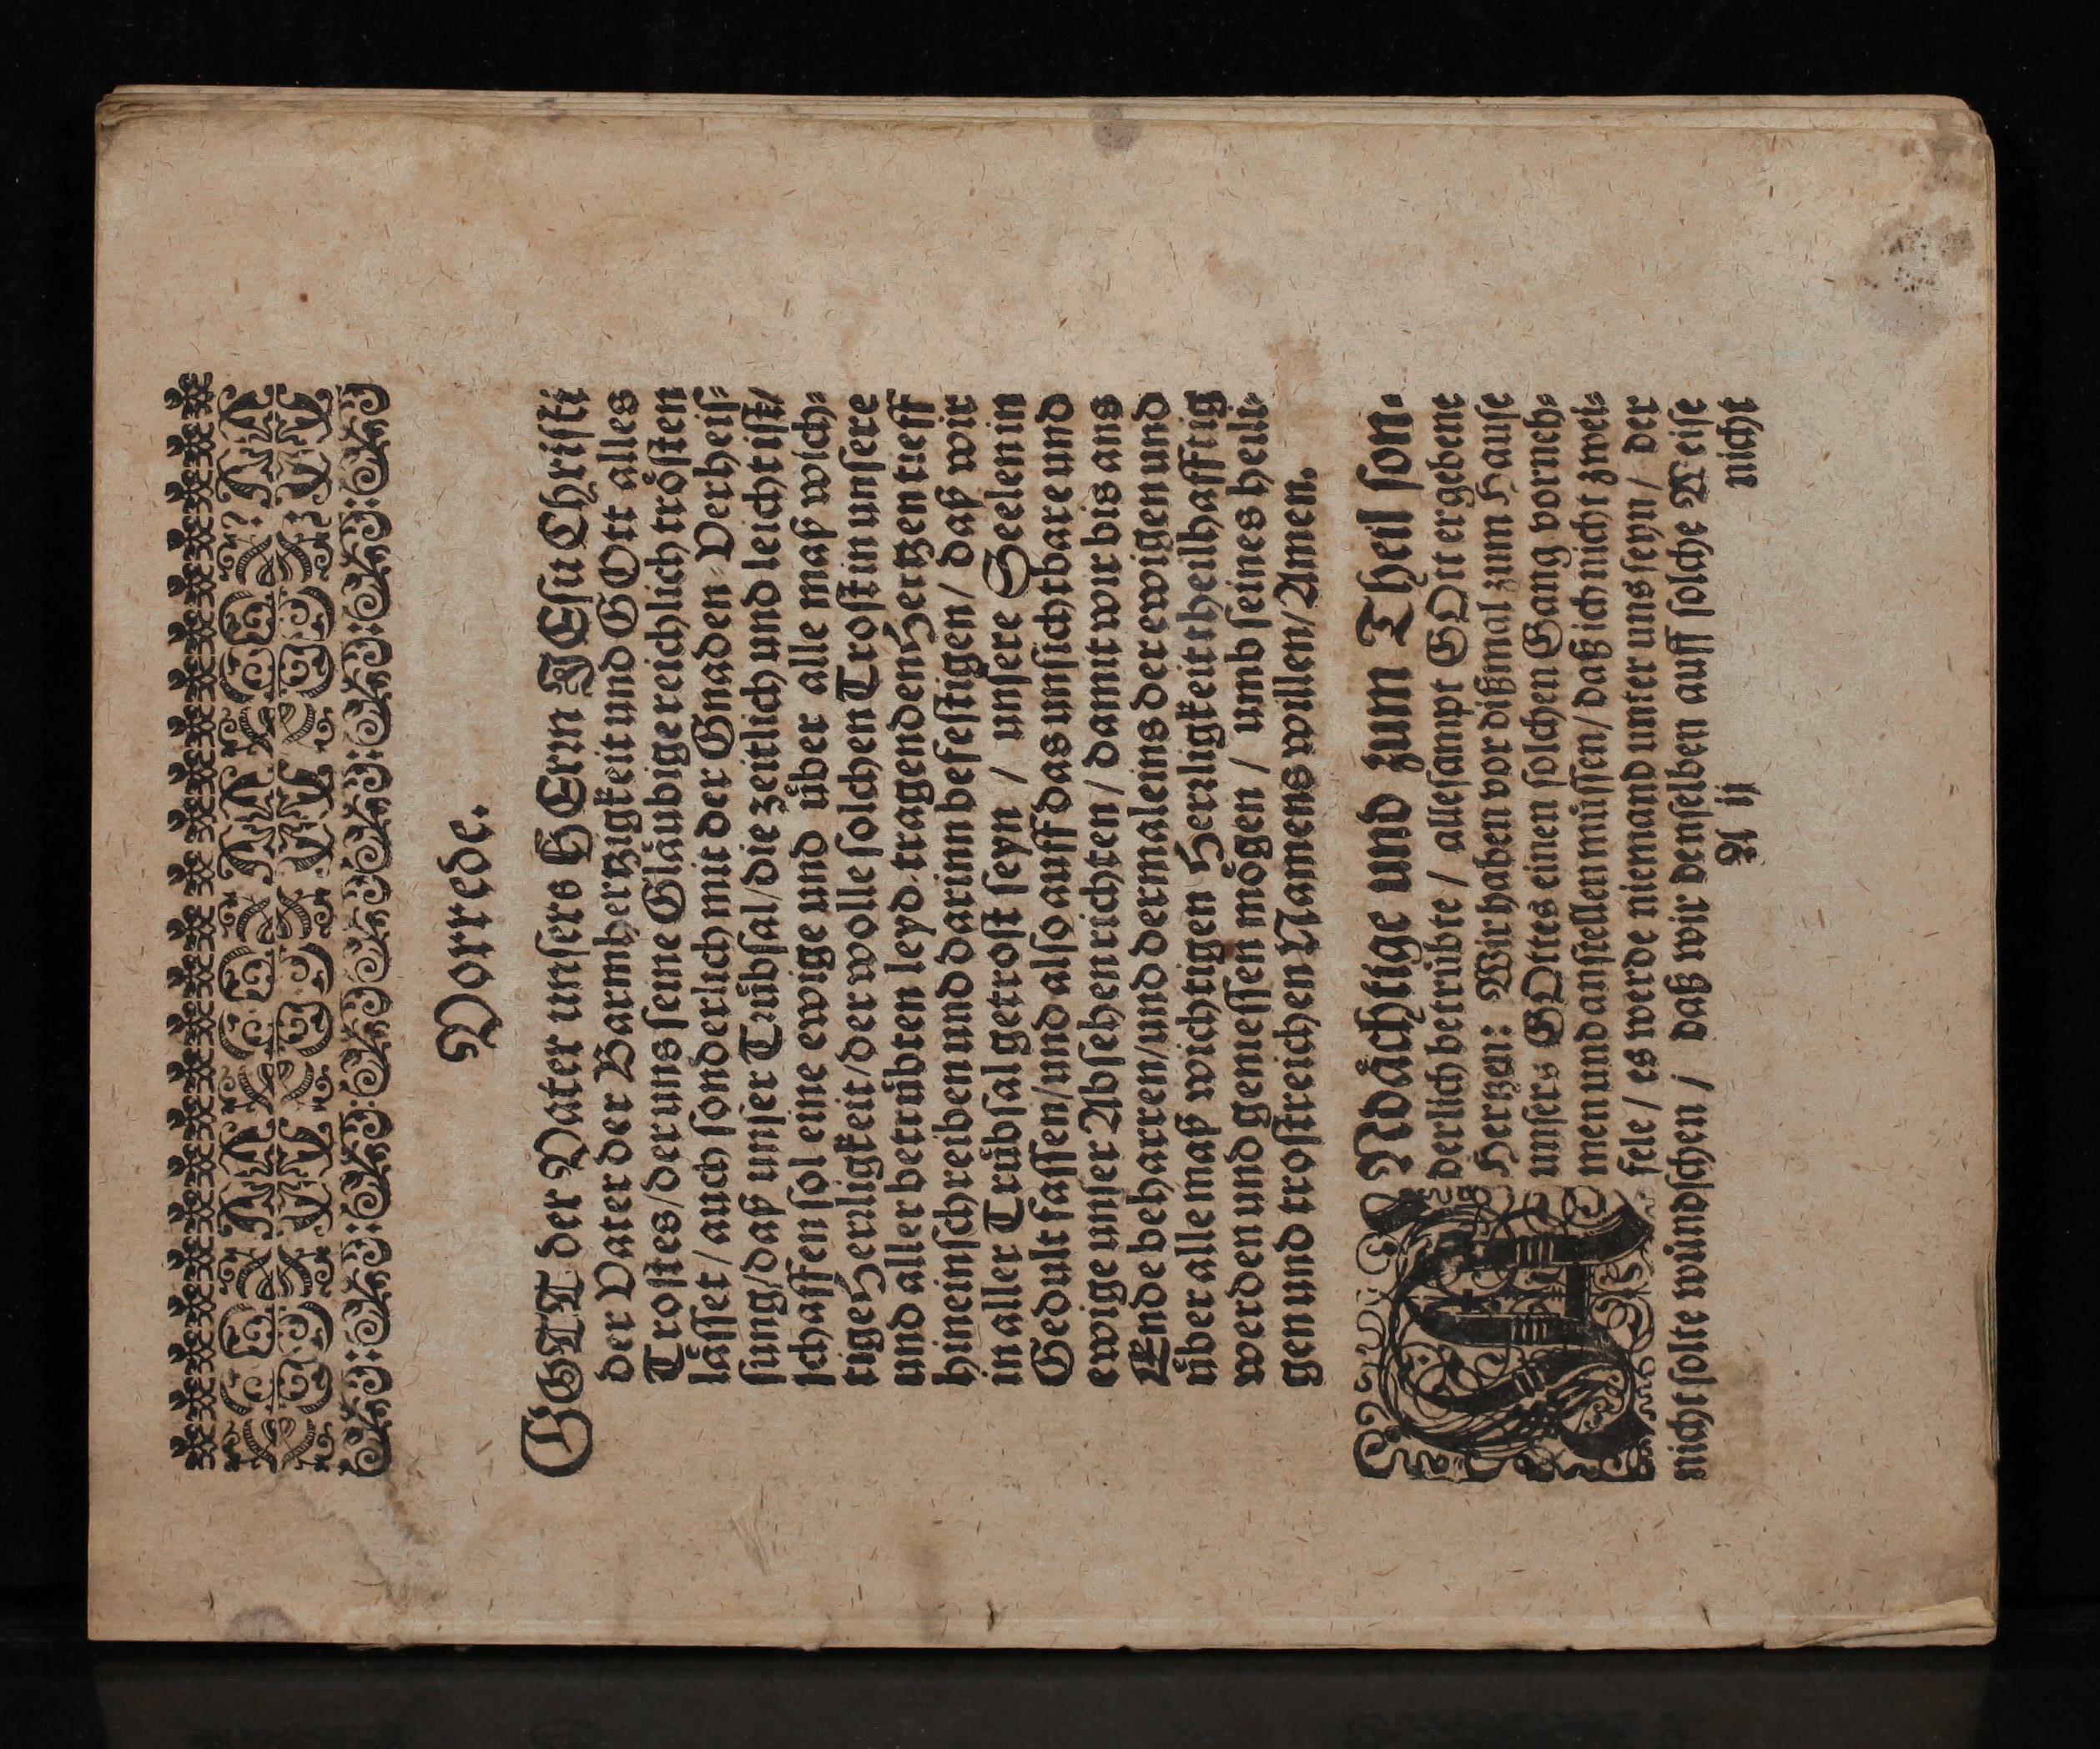 Vorrede.
GOTT der Vater unsers HErrn JEsu Christi
der Vater der Barmhertzigkeit und GOtt alles
Trostes/ der uns seine Gläubige reichlich trösten
lässet/ auch sonderlich mit der Gnaden-Verheis-
sung/ daß unser Trübsal/ die zeitlich und leicht ist/
schaffen sol eine ewige und über alle maß wich-
tige Herrligkeit/ der wolle solchen Trost in unsere
und aller betrübten leyd-tragenden Hertzen tieff
hinein schreiben und darinn befestigen/ daß wir
in aller Trübsal getrost seyn / unsere Seelen in
Gedult fassen/ und also auff das unsichtbare und
ewige unser Absehen richten/ damit wir bis ans
Ende beharren/ und dermaleins der ewigen und
über alle maß wichtigen Herrligkeit theilhafftig
werden und geniessen mögen / umb seines heili-
gen und trostreichen Namens willen/ Amen.
ANdächtige und zum Theil son-
derlich betrübte / allesampt GOtt ergebene
Hertzen: Wir haben vor dißmal zum Hause
unsers GOttes einen solchen Gang vorneh-
men und anstellen müssen/ daß ich nicht zwei-
fele / es werde niemand unter uns seyn/ der
nicht solte wündschen / daß wir denselben auff solche Weise
A ij
nicht